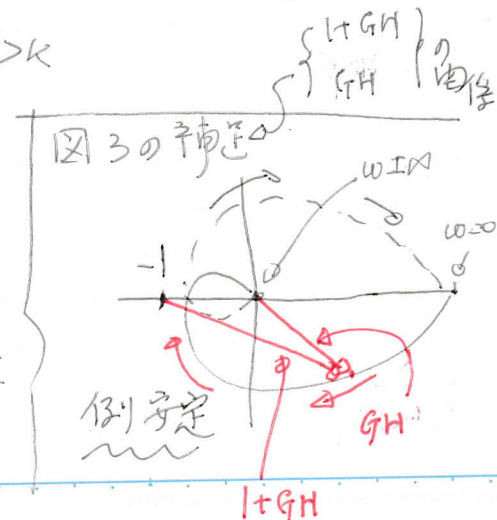 >K
{ 1+GH
GH } の関係
図3の補足
ω=∞
ω=0
-1
例 安定
GH
1+GH